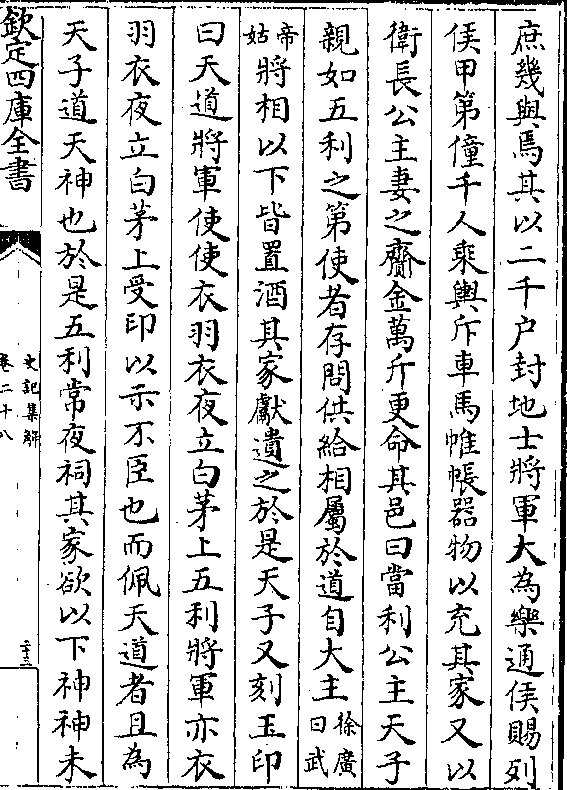 庶幾與焉其以二千户封地士將軍大為樂通侯賜列
侯甲第僮千人乘輿斥車馬帷帳器物以充其家又以
衛長公主妻之齎金萬斤更命其邑曰當利公主天子
親如五利之第使者存問供給相屬於道自大主徐廣曰武
帝姑將相以下皆置酒其家獻遺之於是天子又刻玉印
曰天道將軍使使衣羽衣夜立白茅上五利將軍亦衣
羽衣夜立白茅上受印以示不臣也而佩天道者且為
天子道天神也於是五利常夜祠其家欲以下神神未
欽定四庫全書
史記集解
卷二十八
二十三